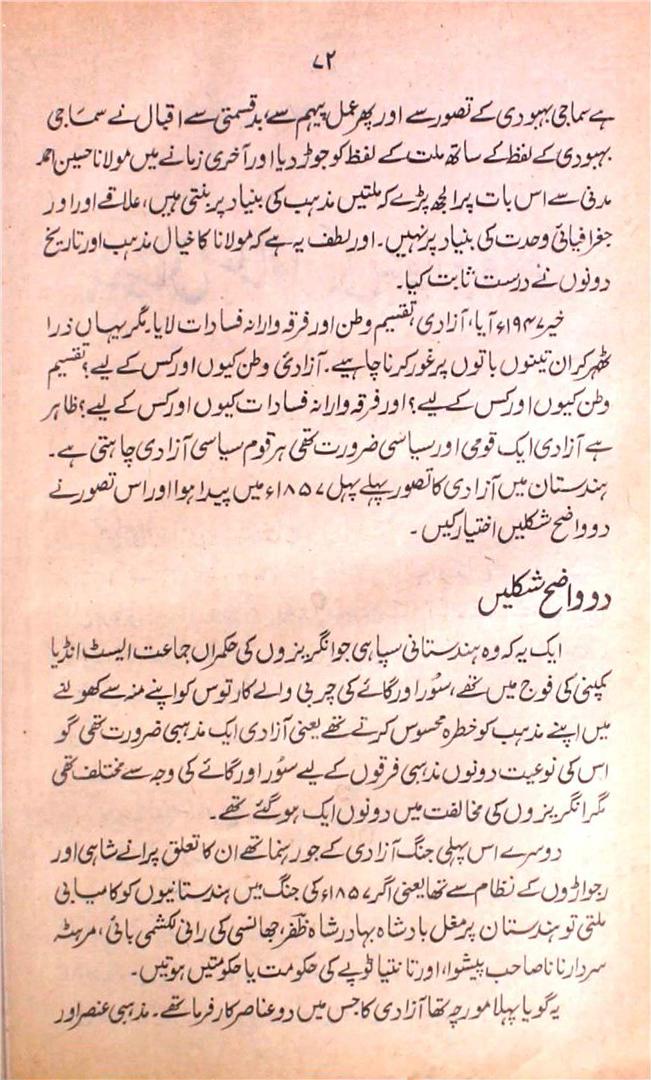 ۷۲
ہے سماجی بہبودی کے تصور سے اور پھر عمل پیہم سے، بد قسمتی سے اقبال نے سماجی
بہبودی کے لفظ کے ساتھ ملت کے لفظ کو جوڑ دیا اور آخری زمانے میں مولانا حسین احمد
مدنی سے اس بات پر الجھ پڑے کہ ملتیں مذہب کی بنیاد پر بنتی ہیں، علاقے اور اور
جغرافیائی وحدت کی بنیاد پر نہیں۔ اور لطف یہ ہے کہ مولانا کا خیال مذہب اور تاریخ
دونوں نے درست ثابت کیا۔
خیر ۱۹۴۷ء آیا، آزادی، تقسیم وطن اور فرقہ وارانہ فسادات لایا۔ مگر یہاں ذرا
ٹھہر کر ان تینوں باتوں پر غور کرنا چاہیے۔ آزادیٔ وطن کیوں اور کس کے لیے؟ تقسیم
وطن کیوں اور کس کے لیے؟ اور فرقہ وارانہ فسادات کیوں اور کس کے لیے؟ ظاہر
ہے آزادی ایک قومی اور سیاسی ضرورت تھی ہر قوم سیاسی آزادی چاہتی ہے۔
ہندستان میں آزادی کا تصور پہلے پہل ۱۸۵۷ء میں پیدا ہوا اور اس تصور نے
دو واضح شکلیں اختیار کیں۔
دو واضح شکلیں
ایک یہ کہ وہ ہندستانی سپاہی جو انگریزوں کی حکمراں جماعت ایسٹ انڈیا
کمپنی کی فوج میں تھے، سوٗر اور گائے کی چربی والے کارتوس کو اپنے منہ سے کھولنے
میں اپنے مذہب کو خطرہ محسوس کرتے تھے یعنی آزادی ایک مذہبی ضرورت تھی گو
اس کی نوعیت دونوں مذہبی فرقوں کے لیے سوٗر اور گائے کی وجہ سے مختلف تھی
مگر انگریزوں کی مخالفت میں دونوں ایک ہو گئے تھے۔
دوسرے اس پہلی جنگ آزادی کے جو رہنما تھے ان کا تعلق پرانے شاہی اور
رجواڑوں کے نظام سے تھا یعنی اگر ۱۸۵۷ء کی جنگ میں ہندستانیوں کو کامیابی
ملتی تو ہندستان پر مغل بادشاہ بہادر شاہ ظفر، جھانسی کی رانی لکشمی بائی، مرہٹہ
سردار نانا صاحب پیشوا، اور تانتیا ٹوپے کی حکومت یا حکومتیں ہوتیں۔
یہ گویا پہلا مورچہ تھا آزادی کا جس میں دو عناصر کار فرما تھے۔ مذہبی عنصر اور